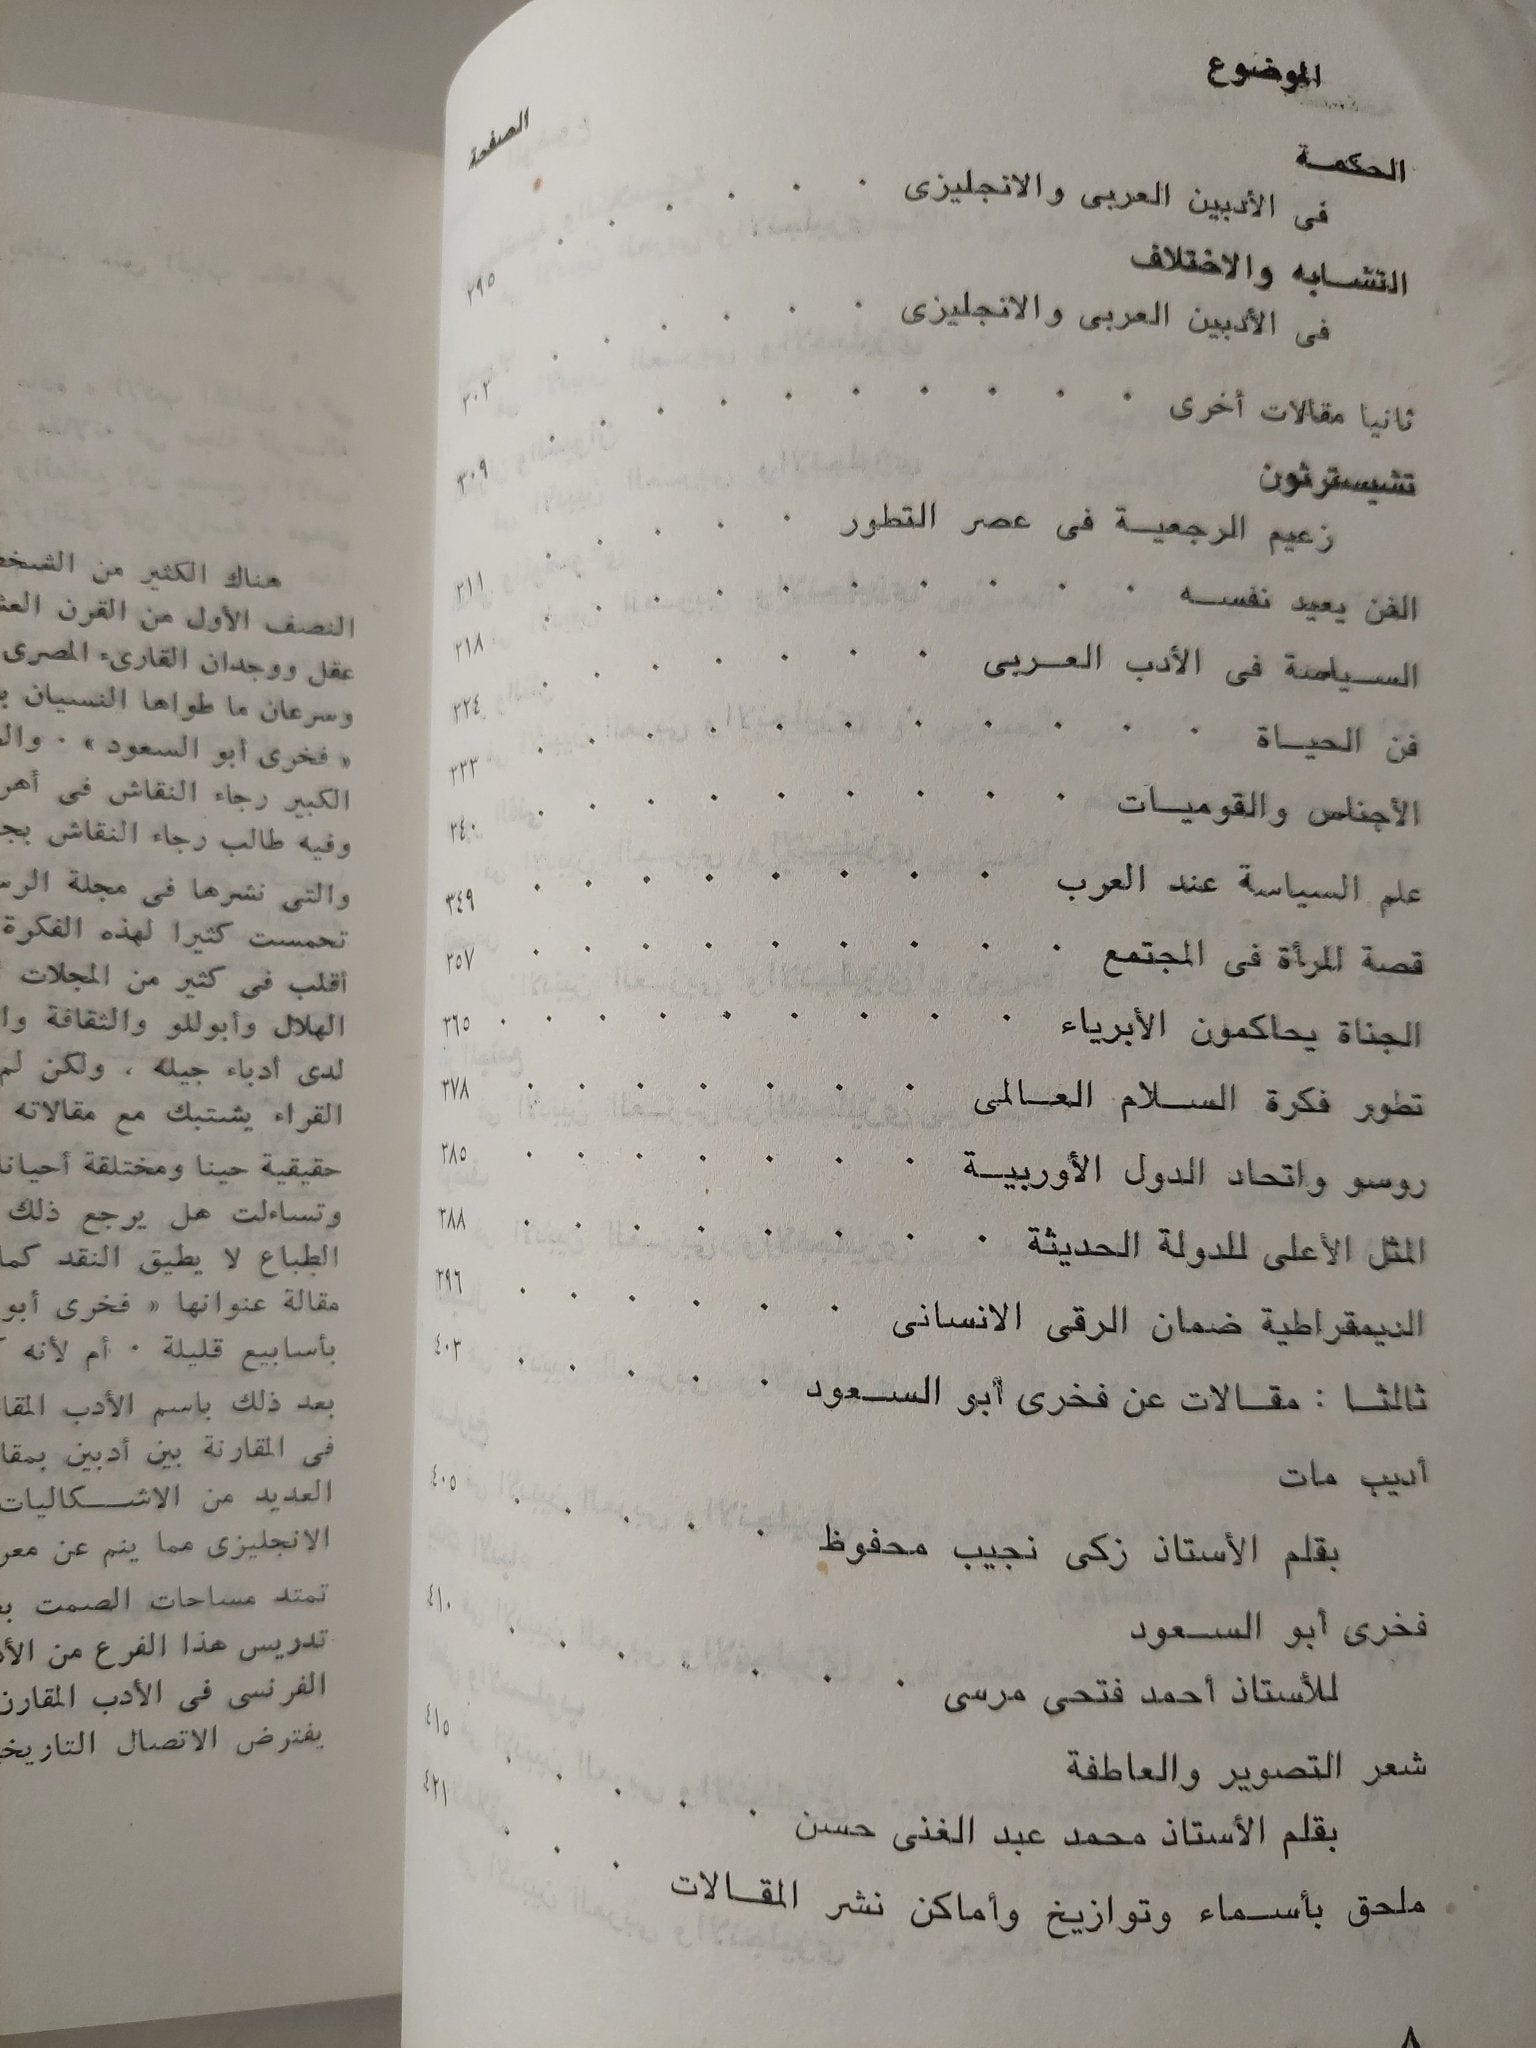 الموضوع
الصفحة
الحكمـة
فى الأدبين العربى والانجليزى . . . . . . ٢٩٥
التشـابه والاختلاف
فى الأدبين العربى والانجليزى . . . . . . ٣٠٢
ثانيا مقالات أخرى . . . . . . . . . ٣٠٩
تشيسترتون
زعيم الرجعيـة فى عصر التطور . . . . . ٣١١
الفن يعيد نفسـه . . . . . . . . . ٣١٨
السـياسة فى الأدب العـربى . . . . . . . ٣٢٤
فن الحيـاة . . . . . . . . . . ٣٣٣
الأجناس والقوميـات . . . . . . . . . ٣٤٠
علم السياسة عند العرب . . . . . . . . ٣٤٩
قصة المرأة فى المجتمع . . . . . . . . . ٣٥٧
الجناة يحاكمون الأبرياء . . . . . . . . . ٣٦٥
تطور فكرة السـلام العـالمى . . . . . . . ٣٧٨
روسو واتحاد الدول الأوربيـة . . . . . . . ٣٨٥
المثل الأعلى للدولة الحديثة . . . . . . . . ٣٨٨
الديمقراطية ضمان الرقى الانسانى . . . . . . ٣٩٦
ثالثـا : مقـالات عن فخرى أبو السـعود . . . . . ٤٠٣
أديب مات
بقلم الأستاذ زكى نجيب محفوظ . . . . . ٤٠٥
فخرى أبو السـعود
للأستاذ أحمد فتحى مرسى . . . . . . . ٤١٠
شعر التصوير والعاطفة
بقلم الأستاذ محمد عبد الغنى حسن . . . . . ٤١٥
ملحق بأسـماء وتوازيخ وأماكن نشر المقـالات . . . ٤٢١
٨
هناك الكثير من
النصف الأول من القرن
عقل ووجدان القارىء المصرى
وسرعان ما طواها النسيان
« فخرى أبو السعود » .
الكبير رجاء النقاش فى
وفيه طالب رجاء النقاش
والتى نشرها فى مجلة
تحمست كثيرا لهذه الفكرة
أقلب فى كثير من المجلات
الهلال وأبوللو والثقافة
لدى أدباء جيله ، ولكن
القراء يشتبك مع مقالاته
حقيقية حينا ومختلقة
وتساءلت هل يرجع ذلك
الطباع لا يطيق النقد
مقالة عنوانها « فخرى أبو
بأسابيع قليلة . أم لأنه
بعد ذلك باسم الأدب
فى المقارنة بين أدبين
العديد من الاشـكاليات
الانجليزى مما ينم عن
تمتد مساحات الصمت
تدريس هذا الفرع من
الفرنسى فى الأدب
يفترض الاتصال